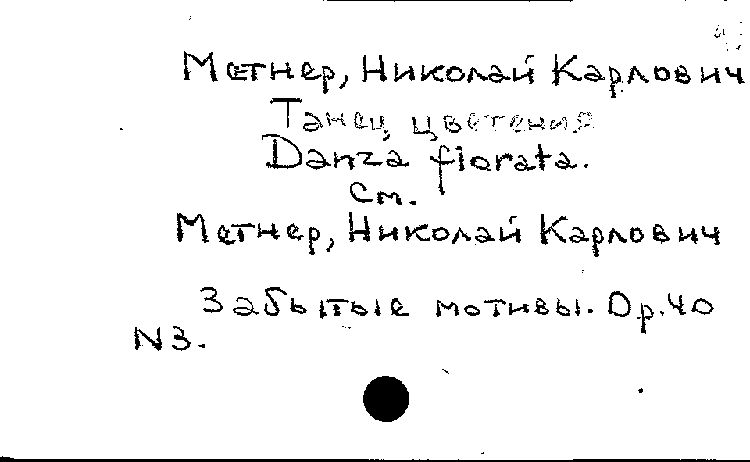 Метнер, Николай Карлович
Танец цветения
Danza fiorata.
См.
Метнер, Николай Карлович
Забытые мотивы. Op. 40
N 3.